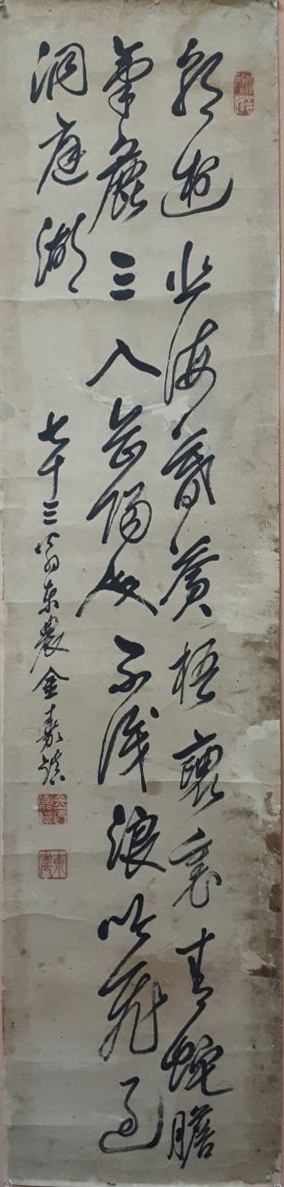 朝遊北海暮蒼梧袖裏青蛇膽
氣麤三入岳陽人不識浪吟飛過
洞庭湖
七十三翁東農金嘉鎮
東農